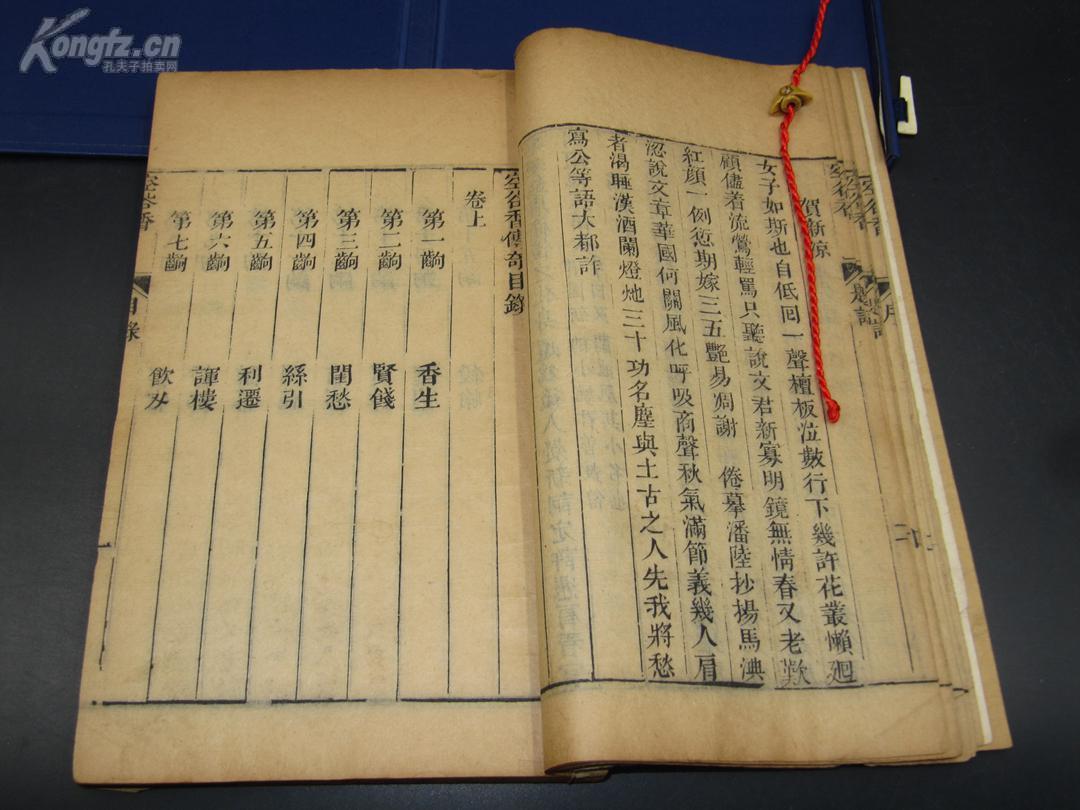 Kongfz.cn
孔夫子拍卖网
空谷香
題詞
賀新涼
女子如斯也自低囘一聲檀板泣數行下幾許花叢懶廻
顧儘着流鶯輕罵只聽說文君新寡明鏡無情春又老歎
紅顔一例愆期嫁三五艷易凋謝 倦摹潘陸抄揚馬
認說文章華國何關風化呼吸商聲秋氣滿節義幾人肩
者渴睡漢酒闌燈灺三十功名塵與土古之人先我將愁
寫公等語大都詐
空谷香傳奇目錄
卷上
第一齣 香生
第二齣 賢餞
第三齣 閨愁
第四齣 絲引
第五齣 利遷
第六齣 諢樓
第七齣 飲刄
空谷香
目錄
一